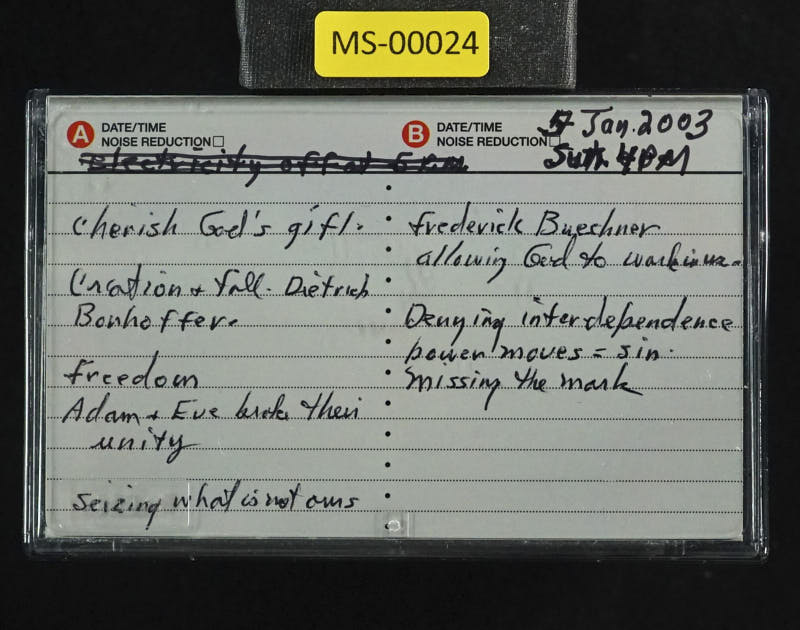 MS-00024
A DATE/TIME
NOISE REDUCTION
Electricity off at 6 P.M.
B DATE/TIME
NOISE REDUCTION
5 Jan. 2003
Sun. 4PM
Cherish God's gift.
Creation + Fall. Dietrich
Bonhoffer.
freedom
Adam + Eve broke their
unity
Seizing what is not ours
Frederick Buechner
allowing God to work in us.
Denying interdependence
power moves = sin.
Missing the mark